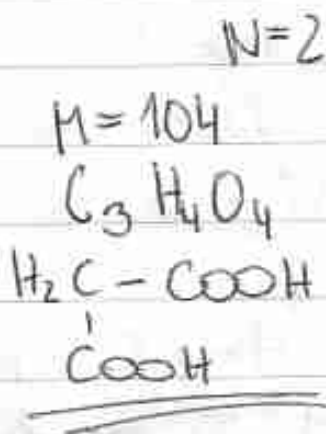 N=2
M=104
C₃H₄O₄
H₂C-COOH
COOH